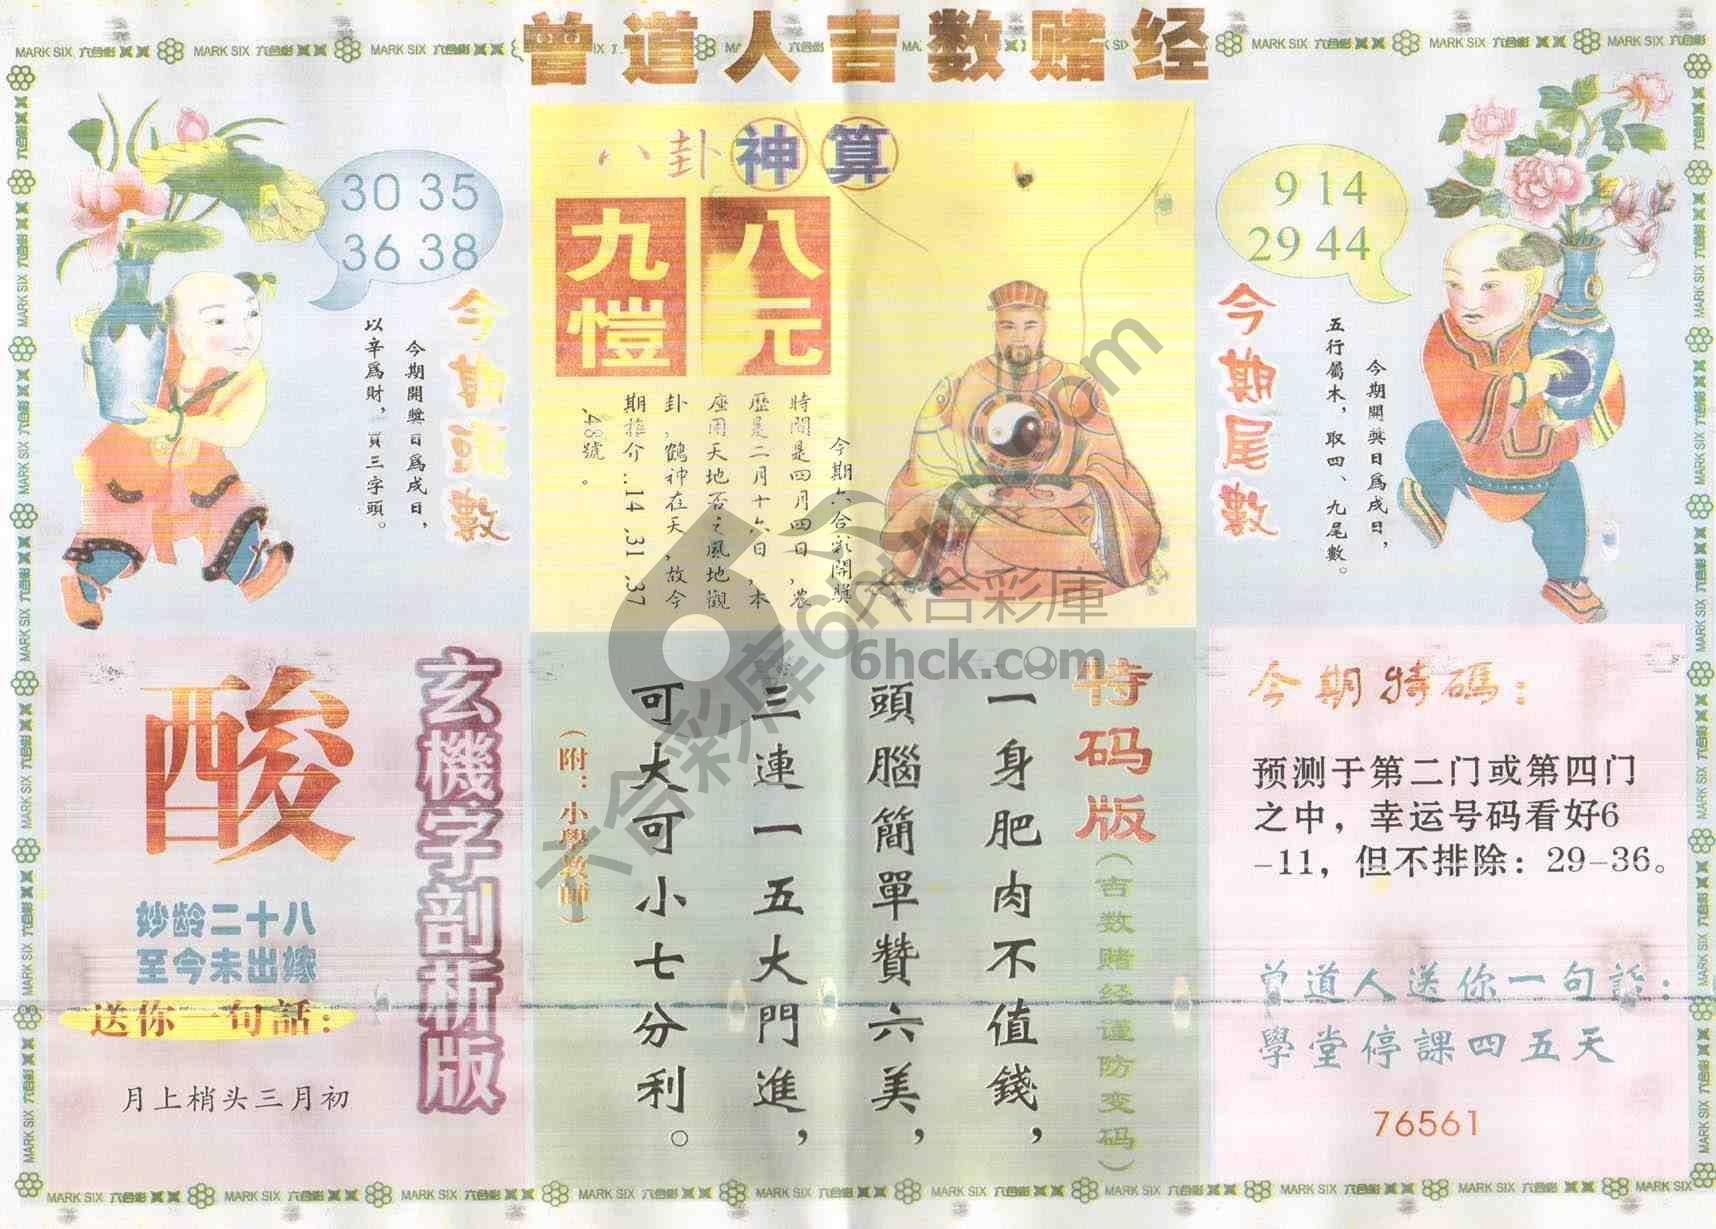 曾道人吉数赌经
MARK SIX 六合彩
八卦神算
九愷
八元
30 35
36 38
今期頭數
今期開獎日爲戌日，
以辛爲財，買三字頭。
今期六合彩開獎
時間是四月四日，農
歷是二月十六日，本
座用天地否之風地觀
卦，鶴神在天，故今
期推介...14 .31 .37
.48號。
9 14
29 44
今期尾數
今期開獎日爲戌日，
五行屬木，取四、九尾數。
玄機字剖析版
酸
妙龄二十八
至今未出嫁
送你一句話：
月上梢头三月初
特码版
(吉数赌经谨防变码)
一身肥肉不值錢，
頭腦簡單贊六美，
三連一五大門進，
可大可小七分利。
(附：小學教師)
今期特碼：
预测于第二门或第四门
之中，幸运号码看好6
-11，但不排除：29-36。
曾道人送你一句話：
學堂停課四五天
76561
六合彩庫
6hck.com